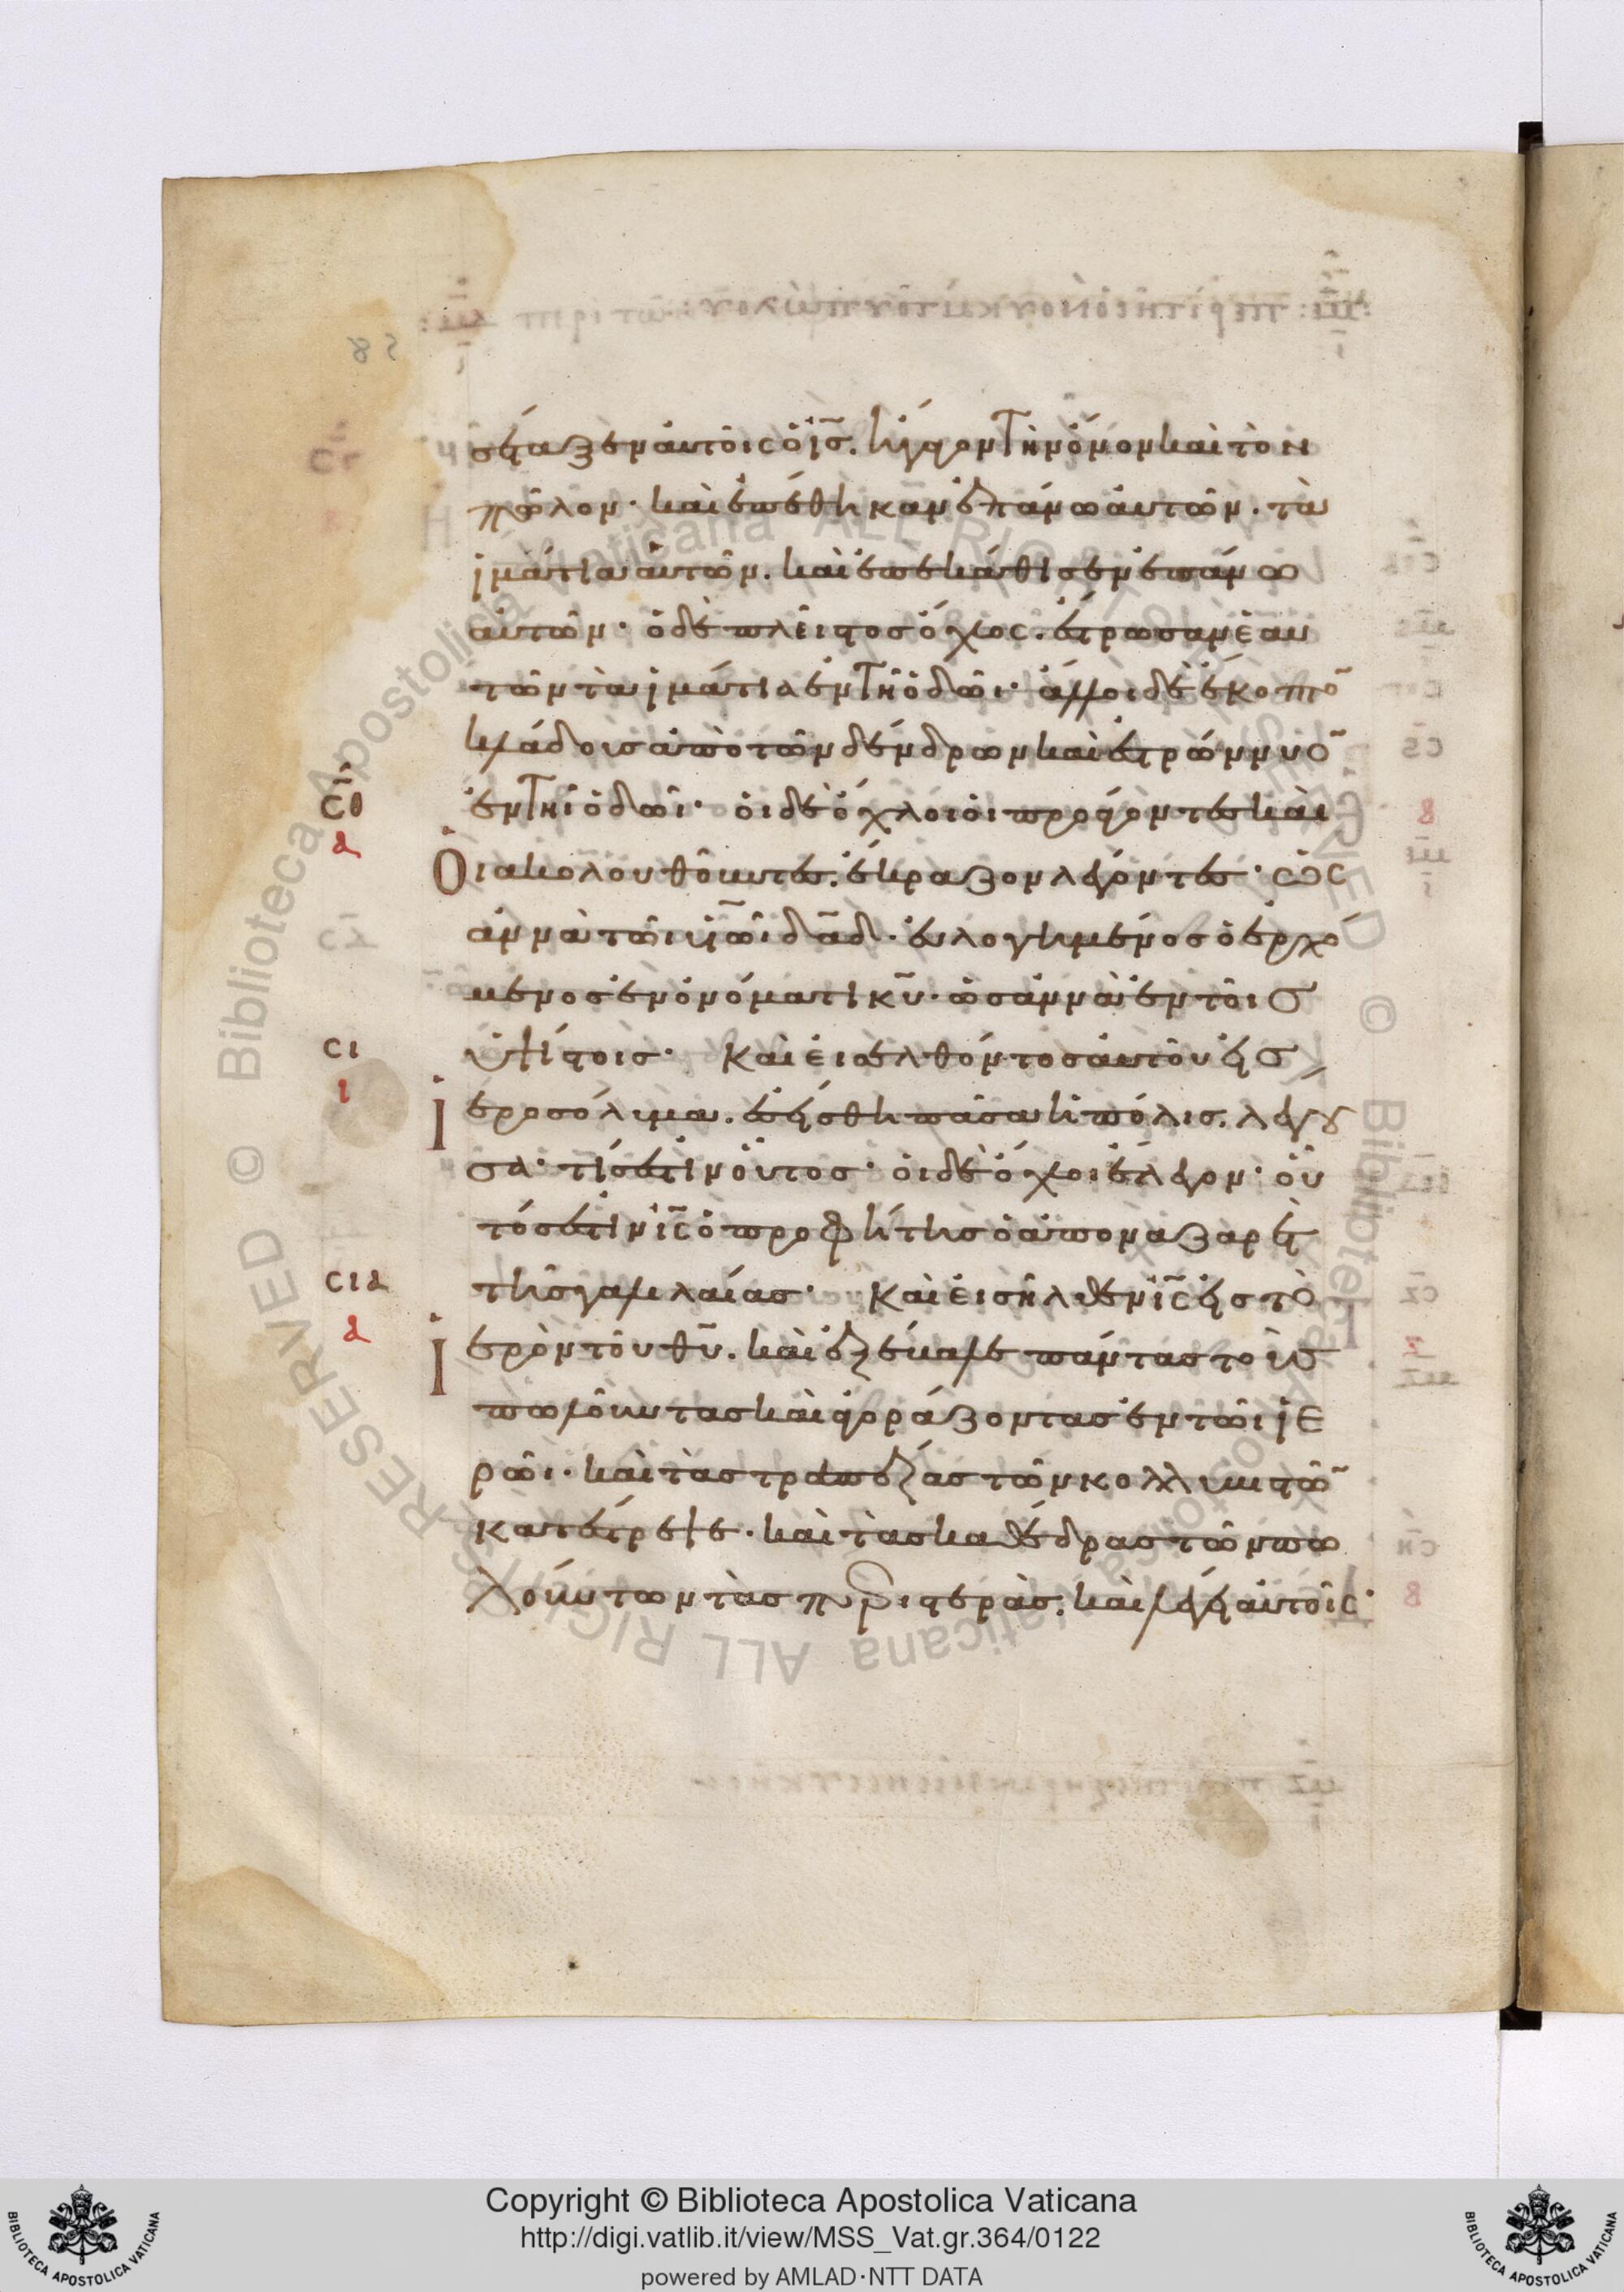 σέταξεν αὐτοῖς ὁ ι̅σ̅. ἤγαγον τὴν ὄνον καὶ τὸν
πῶλον· καὶ ἐπέθηκαν ἐπάνω αὐτῶν. τὰ
ἱμάτια αὐτῶν. καὶ ἐπεκάθισεν ἐπάνω
αὐτῶν· ὁ δὲ πλεῖστος ὄχλος. ἔστρωσαν ἑαυ
τῶν τὰ ἱμάτια ἐν τῆ ὁδῶι· ἄλλοι δὲ ἔκοπτο̅
κλάδους ἀπὸ τῶν δένδρων καὶ ἐστρώννυο̅
ἐν τῆι ὁδῶι· οἱ δὲ ὄχλοι οἱ προάγοντες καὶ
Οἱ ἀκολουθοῦντες. ἔκραζον λέγοντες· ὡσ
αννὰ τῶι υ̅ω̅ι δ̅α̅δ̅. εὐλογημένος ὁ ἐρχό
μενος ἐν ὀνόματι κ̅υ̅. ὡσαννὰ ἐν τοῖς
ὑψίστοις· Καὶ εἰσελθόντος αὐτοῦ εἰς
Ἱεροσόλυμα. ἐσείσθη πᾶσα ἡ πόλις. λέγου
σα· τίς ἐστιν οὗτος· οἱ δὲ ὄχλοι ἔλεγον· οὗ
τός ἐστιν ι̅σ̅ ὁ προφήτης ὁ ἀπὸ ναζαρὲτ
τῆς γαλιλαίας· Καὶ εἰσῆλθεν ι̅σ̅ εἰς τὸ
Ἱερὸν τοῦ θ̅υ̅. καὶ ἐξέβαλε πάντας τοὺς
πωλοῦντας καὶ ἀγοράζοντας ἐν τῶι ἱε
ρῶι· καὶ τὰς τραπέζας τῶν κολλυβιστῶ̅
κατέστρεψε. καὶ τὰς καθέδρας τῶν πω
λούντων τὰς περιστεράς. καὶ λέγει αὐτοῖς·
σ̅θ̅
α
σι
ι
σια
α
Copyright © Biblioteca Apostolica Vaticana
http://digi.vatlib.it/view/MSS_Vat.gr.364/0122
powered by AMLAD·NTT DATA
BIBLIOTECA APOSTOLICA VATICANA
BIBLIOTECA APOSTOLICA VATICANA